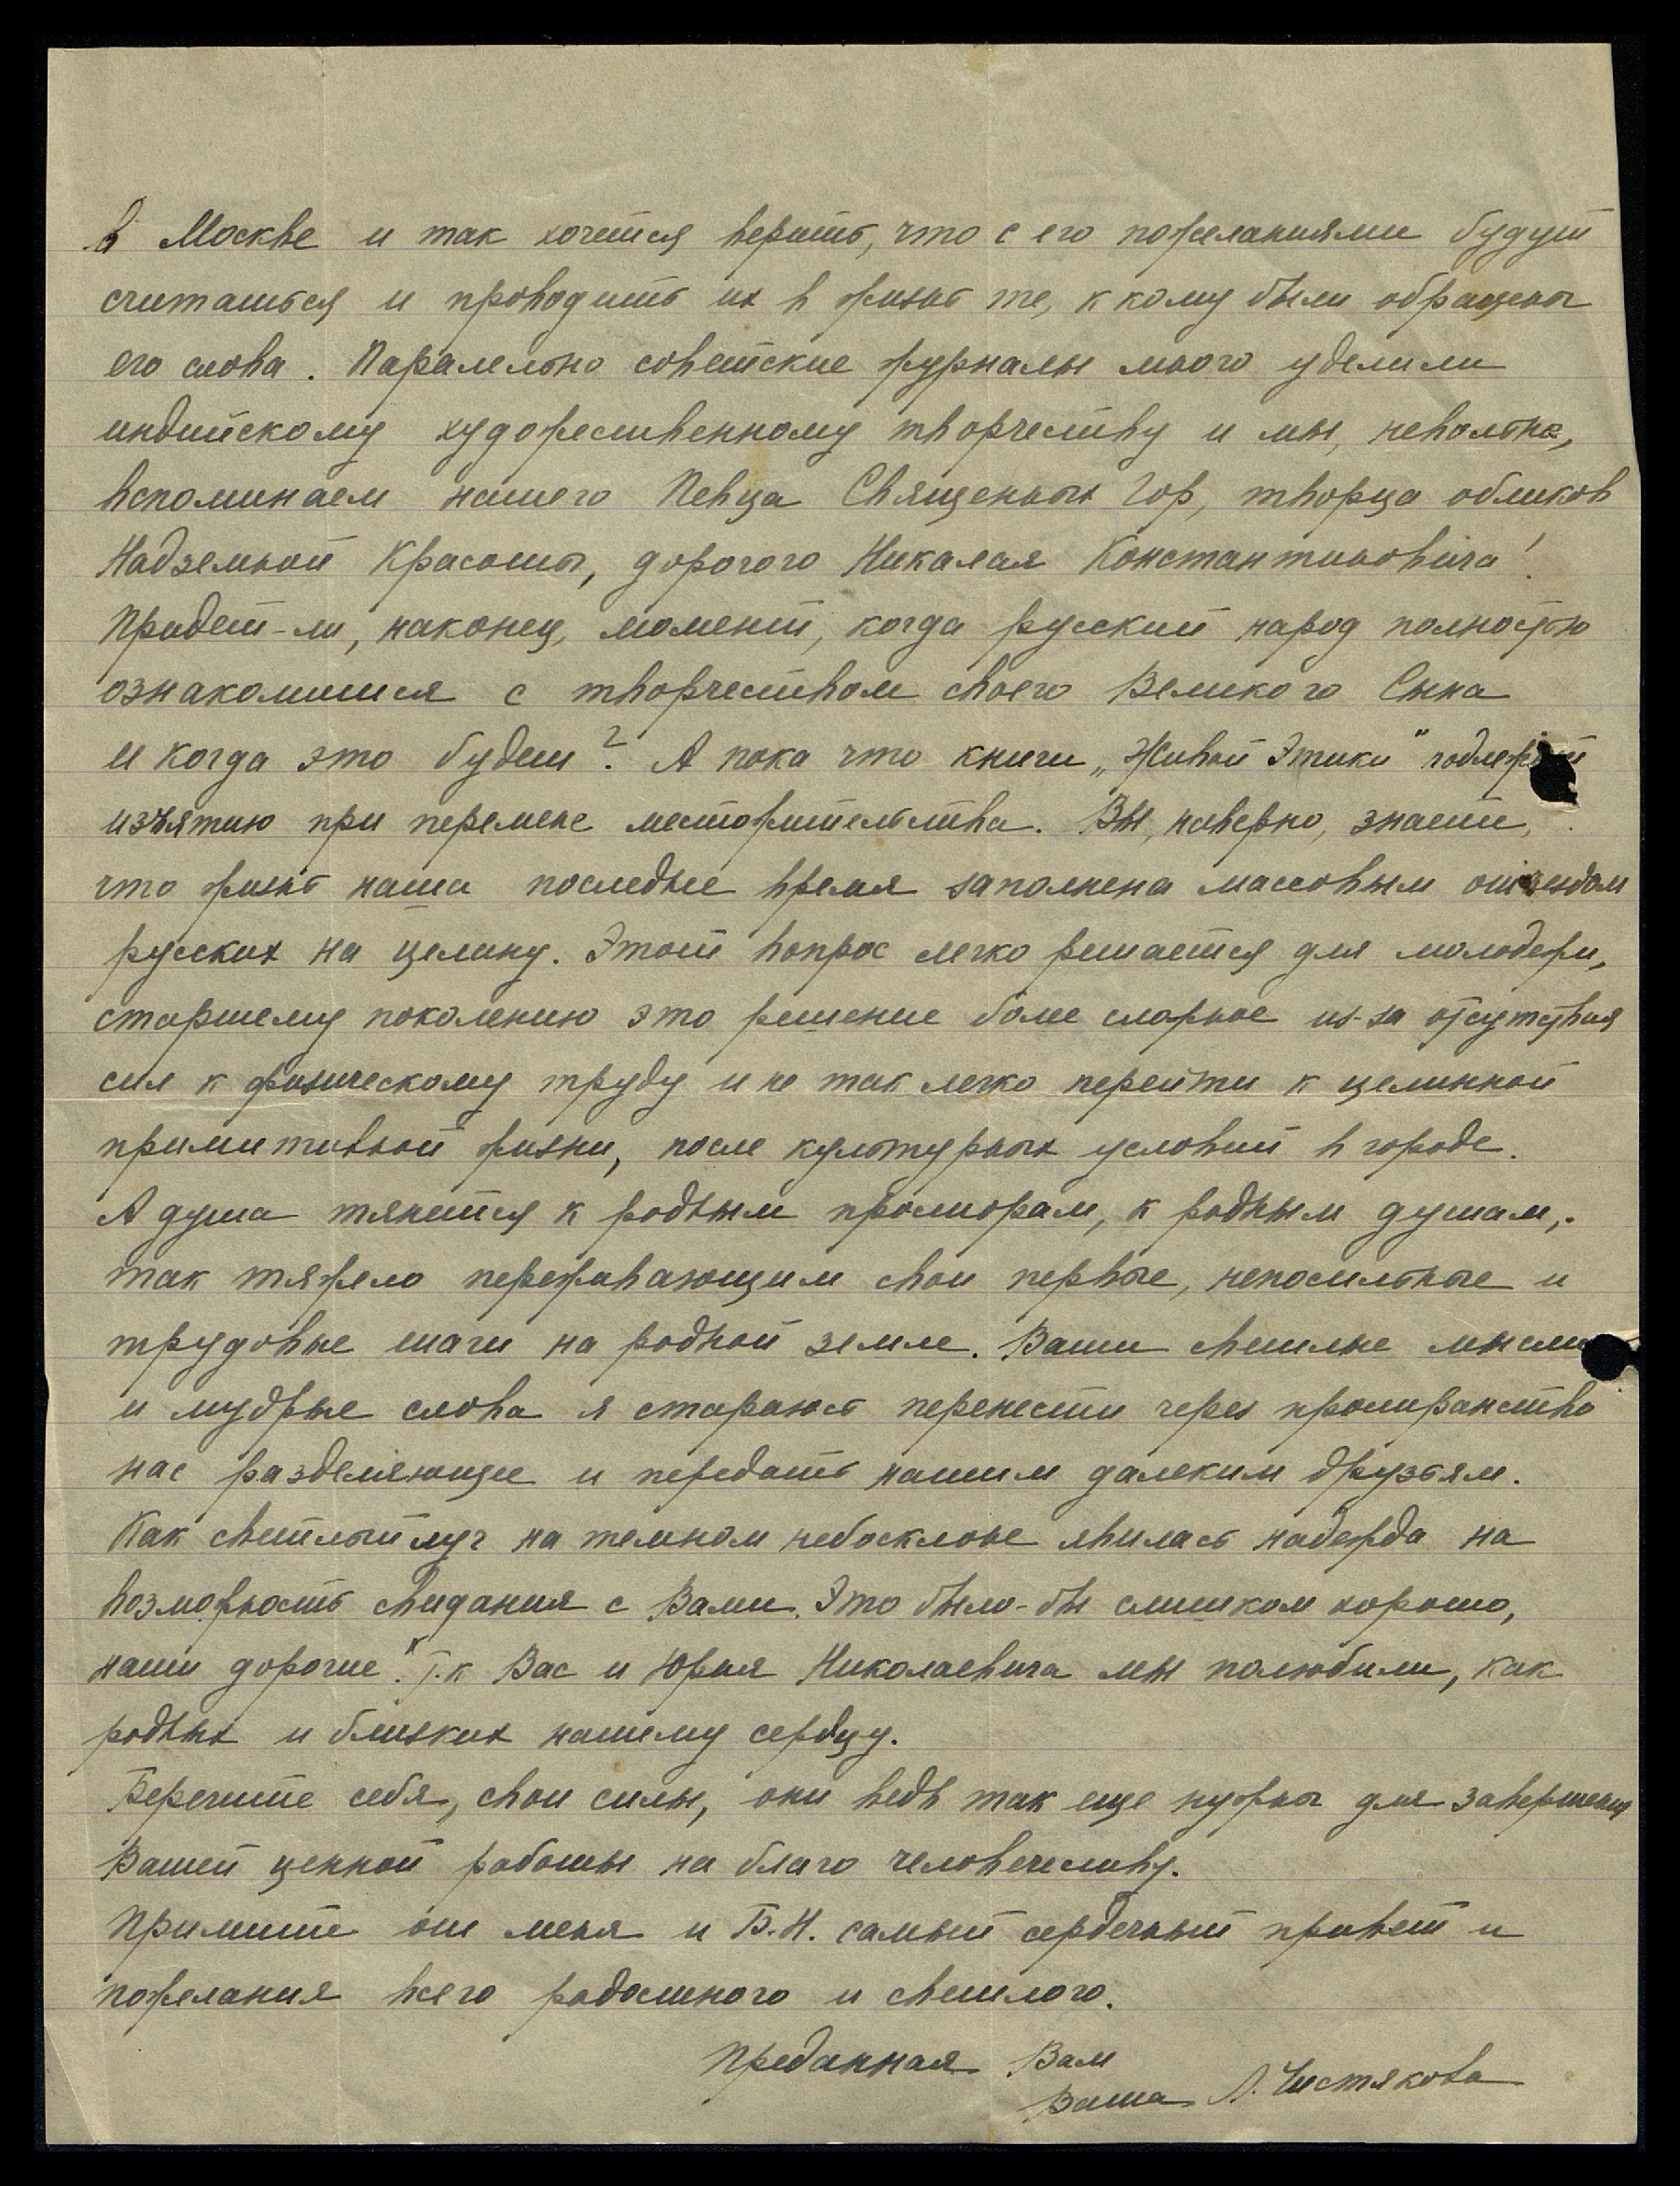 в Москве и так хочется верить, что с его пожеланиями будут
считаться и проводить их в жизнь те, к кому были обращены
его слова. Паралельно советские журналы много уделили
индийскому художественному творчеству и мы, невольно,
вспоминаем нашего Певца Священных Гор, творца обликов
Надземной Красоты, дорогого Николая Константиновича!
Придет-ли, наконец, момент, когда русский народ полностью
ознакомится с творчеством своего Великого Сына
и когда это будет? А пока что книги „Живой Этики" подлежат
изъятию при перемене местожительства. Вы, наверно, знаете,
что жизнь наша последнее время заполнена массовым отъездом
русских на целину. Этот вопрос легко решается для молодежи,
старшему поколению это решение более сложное из-за отсутствия
сил к физическому труду и не так легко перейти к целинной
примитивной жизни, после культурных условий в городе.
А душа тянется к родным просторам, к родным душам,
так тяжело переживающим свои первые, непосильные и
трудовые шаги на родной земле. Ваши светлые мысли
и мудрые слова я стараюсь перенести через пространство
нас разделяющее и передать нашим далеким друзьям.
Как светлый луч на темном небосклоне явилась надежда на
возможность свидания с Вами. Это было-бы слишком хорошо,
наши дорогие! Т.к Вас и Юрия Николаевича мы полюбили, как
родных и близких нашему сердцу.
Берегите себя, свои силы, они ведь так еще нужны для завершения
Вашей ценной работы на благо человечеству.
Примите от меня и Б.Н. самый сердечный привет и
пожелания всего радостного и светлого.
Преданная Вам
Ваша Л. Чистякова